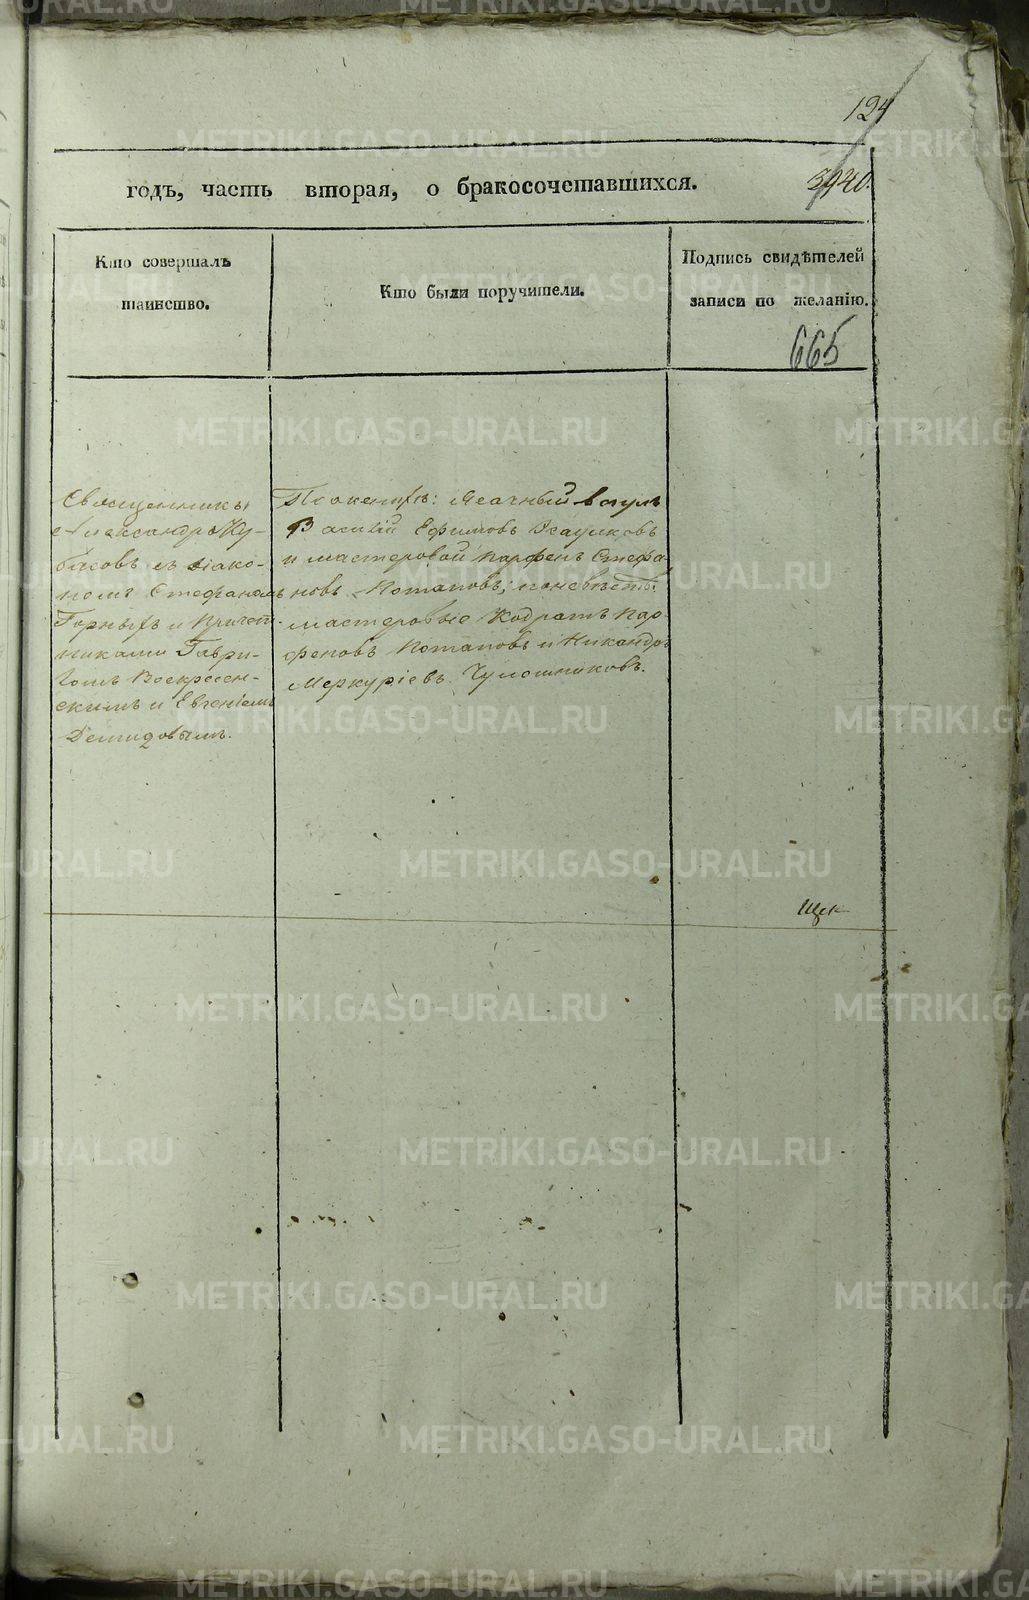 124
годъ, часть вторая, о бракосочетавшихся.
3940.
Кто совершалъ
таинство.
Кто были поручители.
Подпись свидѣтелей
записи по желанію.
665
Священникъ
Александръ Ку-
басовъ съ діако-
номъ Стефаномъ
Горныхъ и Причет-
никами Гаври-
ломъ Воскресен-
скимъ и Евгеніемъ
Демидовымъ.
По женихѣ: Ясачный вогулъ
Василій Ефимовъ
и мастеровой Парфенъ Стефа
новъ Потаповъ; по невѣстѣ:
мастеровые Кодратъ Пар-
феновъ Потаповъ и Никандръ
Меркуріевъ Чулошниковъ.
METRIKI.GASO-URAL.RU